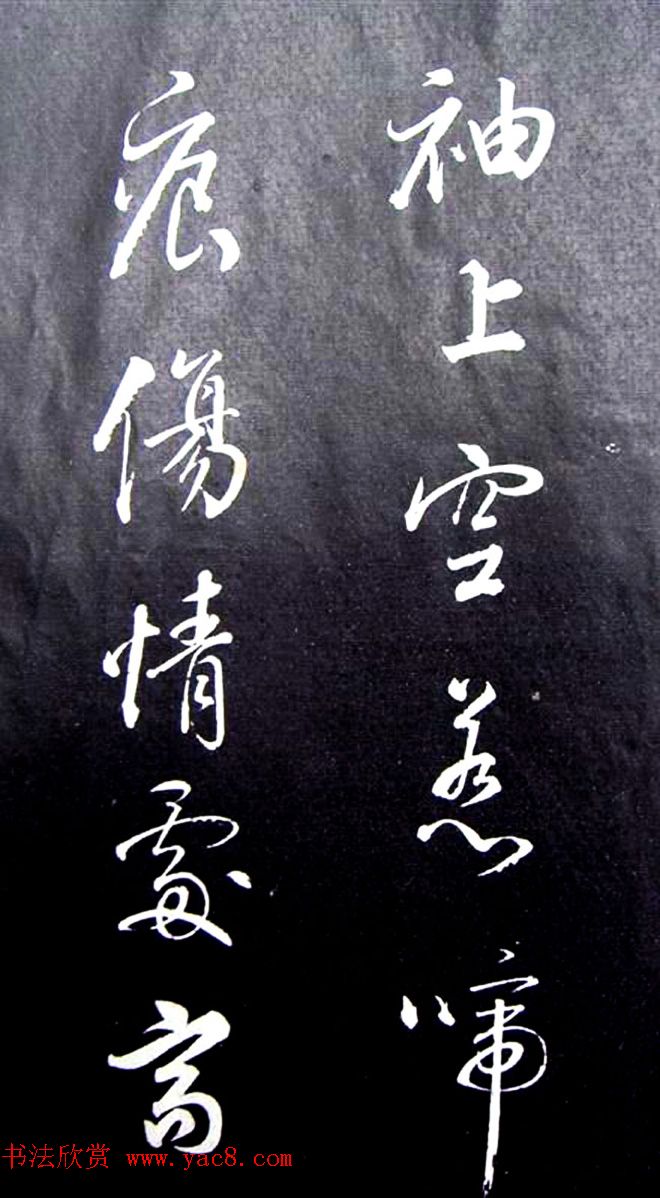 袖上空惹啼
痕傷情處高
书法欣赏 www.yac8.com